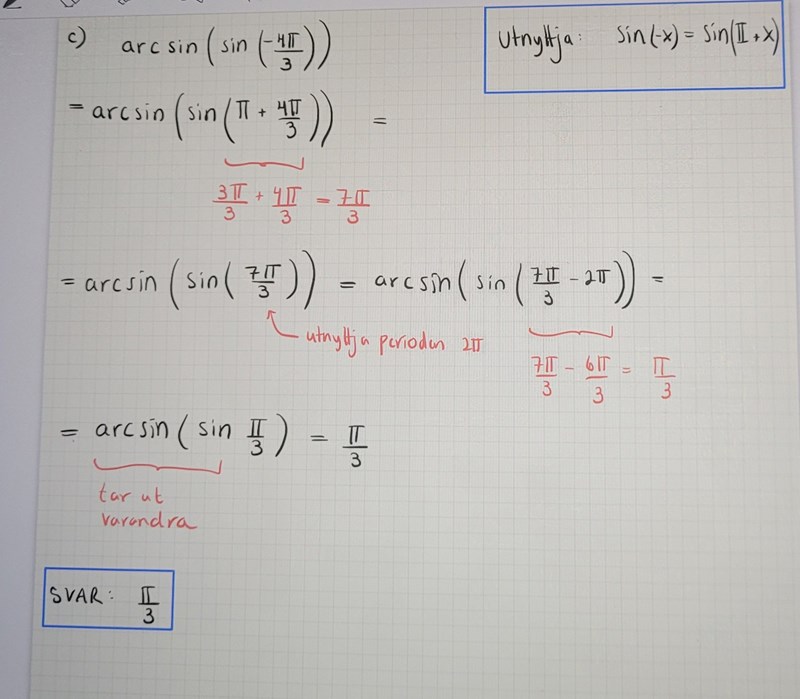 c) arcsin(sin(-4π/3))
Utnyttja: sin(-x) = sin(π+x)
= arcsin(sin(π + 4π/3)) =
3π/3 + 4π/3 = 7π/3
= arcsin(sin(7π/3)) = arcsin(sin(7π/3 - 2π)) =
utnyttja perioden 2π
7π/3 - 6π/3 = π/3
= arcsin(sin π/3) = π/3
tar ut
varandra
SVAR: π/3